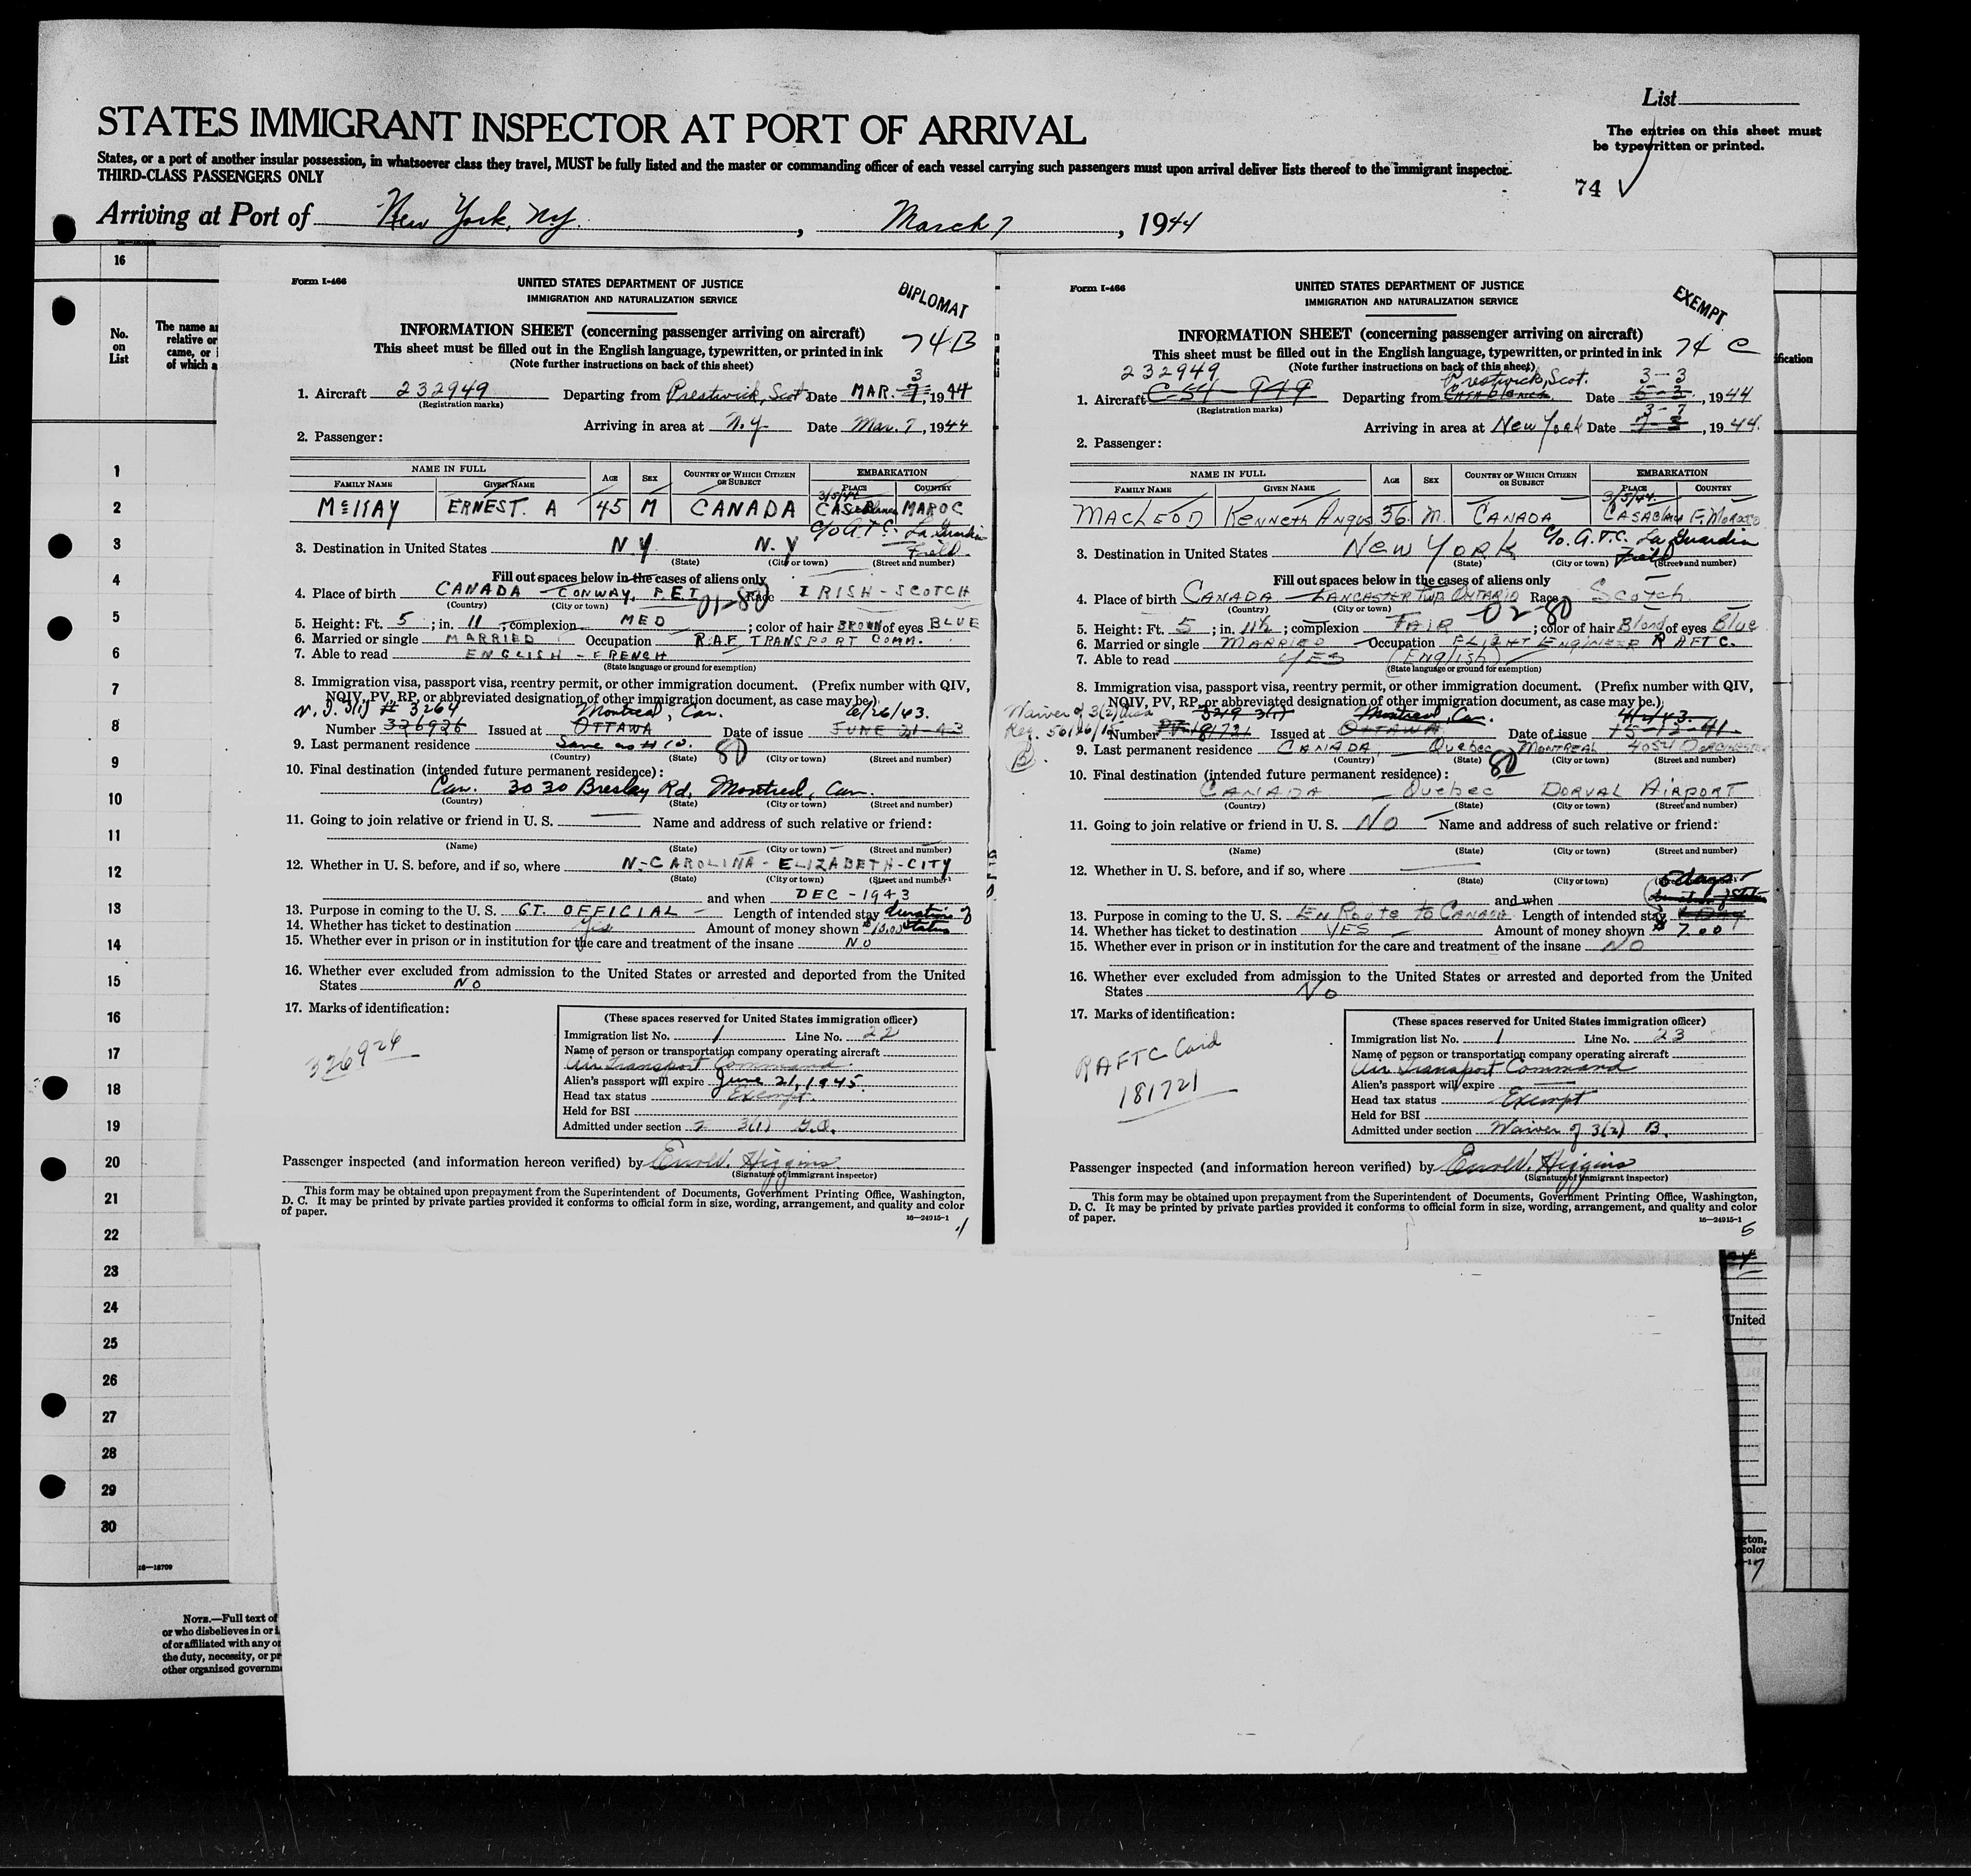 List
STATES IMMIGRANT INSPECTOR AT PORT OF ARRIVAL
The entries on this sheet must
be typewritten or printed.
States, or a port of another insular possession, in whatsoever class they travel, MUST be fully listed and the master or commanding officer of each vessel carrying such passengers must upon arrival deliver lists thereof to the immigrant inspector.
THIRD-CLASS PASSENGERS ONLY
74
Arriving at Port of New York, Ny. , March 7 , 1944
16
No.
on
List
The name a
relative or
came, or i
of which a
ification
1
2
3
4
5
6
7
8
9
10
11
12
13
14
15
16
17
18
19
20
21
22
23
24
25
26
27
28
29
30
16—18709
NOTE.—Full text of
or who disbelieves in or i
of or affiliated with any or
the duty, necessity, or pr
other organized governm
Form I-466
UNITED STATES DEPARTMENT OF JUSTICE
IMMIGRATION AND NATURALIZATION SERVICE
DIPLOMAT
INFORMATION SHEET (concerning passenger arriving on aircraft)
74B
This sheet must be filled out in the English language, typewritten, or printed in ink
(Note further instructions on back of this sheet)
1. Aircraft 232949 Departing from Prestwick, Scot Date MAR. 7 3, 1944
(Registration marks)
Arriving in area at N.Y. Date Mar. 7, 1944
2. Passenger:
NAME IN FULL AGE SEX COUNTRY OF WHICH CITIZEN OR SUBJECT EMBARKATION
FAMILY NAME GIVEN NAME PLACE COUNTRY
3/5/44
McKAY ERNEST. A 45 M CANADA CASablanca MAROC
c/o A.T.C. La Guardia
Field
3. Destination in United States NY N.Y
(State) (City or town) (Street and number)
Fill out spaces below in the cases of aliens only
4. Place of birth CANADA CONWAY, PEI Race IRISH-SCOTCH
(Country) (City or town)
01-80
5. Height: Ft. 5 ; in. 11 ; complexion MED ; color of hair BROWN of eyes BLUE
6. Married or single MARRIED Occupation R.A.F. TRANSPORT COMM.
7. Able to read ENGLISH - FRENCH
(State language or ground for exemption)
8. Immigration visa, passport visa, reentry permit, or other immigration document. (Prefix number with QIV,
NQIV, PV, RP, or abbreviated designation of other immigration document, as case may be.)
# 3264 Montreal, Can. 6/26/43.
Number 326926 Issued at OTTAWA Date of issue JUNE 21-43
9. Last permanent residence Same as # 10.
(Country) (State) (City or town) (Street and number)
80
10. Final destination (intended future permanent residence):
Can. 3030 Breslay Rd, Montreal, Can.
(Country) (State) (City or town) (Street and number)
11. Going to join relative or friend in U. S. Name and address of such relative or friend:
(Name) (State) (City or town) (Street and number)
12. Whether in U. S. before, and if so, where N-CAROLINA-ELIZABETH-CITY
(State) (City or town) (Street and number)
and when DEC-1943
13. Purpose in coming to the U. S. GT. OFFICIAL Length of intended stay duration of
status
14. Whether has ticket to destination Yes Amount of money shown $10.00
15. Whether ever in prison or in institution for the care and treatment of the insane NO
16. Whether ever excluded from admission to the United States or arrested and deported from the United
States NO
17. Marks of identification:
326926
(These spaces reserved for United States immigration officer)
Immigration list No. 1 Line No. 22
Name of person or transportation company operating aircraft
Air Transport Command.
Alien's passport will expire June 21, 1945.
Head tax status Exempt.
Held for BSI
Admitted under section 3(1) G.O.
Passenger inspected (and information hereon verified) by Higgins
(Signature of immigrant inspector)
This form may be obtained upon prepayment from the Superintendent of Documents, Government Printing Office, Washington,
D. C. It may be printed by private parties provided it conforms to official form in size, wording, arrangement, and quality and color
of paper.
16—24915-1
4
Form I-466
UNITED STATES DEPARTMENT OF JUSTICE
IMMIGRATION AND NATURALIZATION SERVICE
EXEMPT
INFORMATION SHEET (concerning passenger arriving on aircraft)
74 C
This sheet must be filled out in the English language, typewritten, or printed in ink
(Note further instructions on back of this sheet)
232949 Prestwick, Scot. 3-3
1. Aircraft C-54 949 Departing from Casablanca Date 5-3, 1944
(Registration marks)
3-7
Arriving in area at New York Date 7-3, 1944.
2. Passenger:
NAME IN FULL AGE SEX COUNTRY OF WHICH CITIZEN OR SUBJECT EMBARKATION
FAMILY NAME GIVEN NAME PLACE COUNTRY
3/5/44.
MACLEOD Kenneth Angus 56 M. CANADA CASABLANCA F. Morocco
c/o. A.T.C. La Guardia
Field
3. Destination in United States NEW YORK
(State) (City or town) (Street and number)
Fill out spaces below in the cases of aliens only
4. Place of birth CANADA LANCASTER TWP. ONTARIO Race Scotch
(Country) (City or town)
02-80
5. Height: Ft. 5 ; in. 11½ ; complexion FAIR ; color of hair Blond of eyes Blue
6. Married or single MARRIED Occupation FLIGHT ENGINEER RAFTC.
7. Able to read YES (English)
(State language or ground for exemption)
8. Immigration visa, passport visa, reentry permit, or other immigration document. (Prefix number with QIV,
NQIV, PV, RP, or abbreviated designation of other immigration document, as case may be.)
Waiver of 3(2) 3219 3(1) Montreal, Can. 4/2/43.
Number 181721 Issued at OTTAWA Date of issue 15-12-41
B.
9. Last permanent residence CANADA Quebec MONTREAL 4054 DORCHESTER
(Country) (State) (City or town) (Street and number)
80
10. Final destination (intended future permanent residence):
CANADA Quebec DORVAL AIRPORT
(Country) (State) (City or town) (Street and number)
11. Going to join relative or friend in U. S. No Name and address of such relative or friend:
(Name) (State) (City or town) (Street and number)
12. Whether in U. S. before, and if so, where
(State) (City or town) (Street and number)
5 days
and when
13. Purpose in coming to the U. S. En Route to Canada Length of intended stay
14. Whether has ticket to destination YES Amount of money shown $ 7.00
15. Whether ever in prison or in institution for the care and treatment of the insane NO
16. Whether ever excluded from admission to the United States or arrested and deported from the United
States No
17. Marks of identification:
RAFTC Card
181721
(These spaces reserved for United States immigration officer)
Immigration list No. 1 Line No. 23
Name of person or transportation company operating aircraft
Air Transport Command
Alien's passport will expire
Head tax status Exempt
Held for BSI
Admitted under section Waiver of 3(2) B.
Passenger inspected (and information hereon verified) by Higgins
(Signature of immigrant inspector)
This form may be obtained upon prepayment from the Superintendent of Documents, Government Printing Office, Washington,
D. C. It may be printed by private parties provided it conforms to official form in size, wording, arrangement, and quality and color
of paper.
16—24915-1
5
United
gton,
color
7